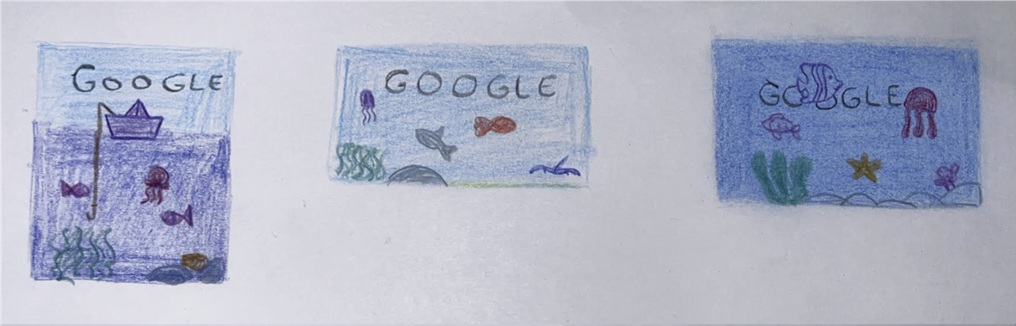 GOOGLE
GOOGLE
GOOGLE